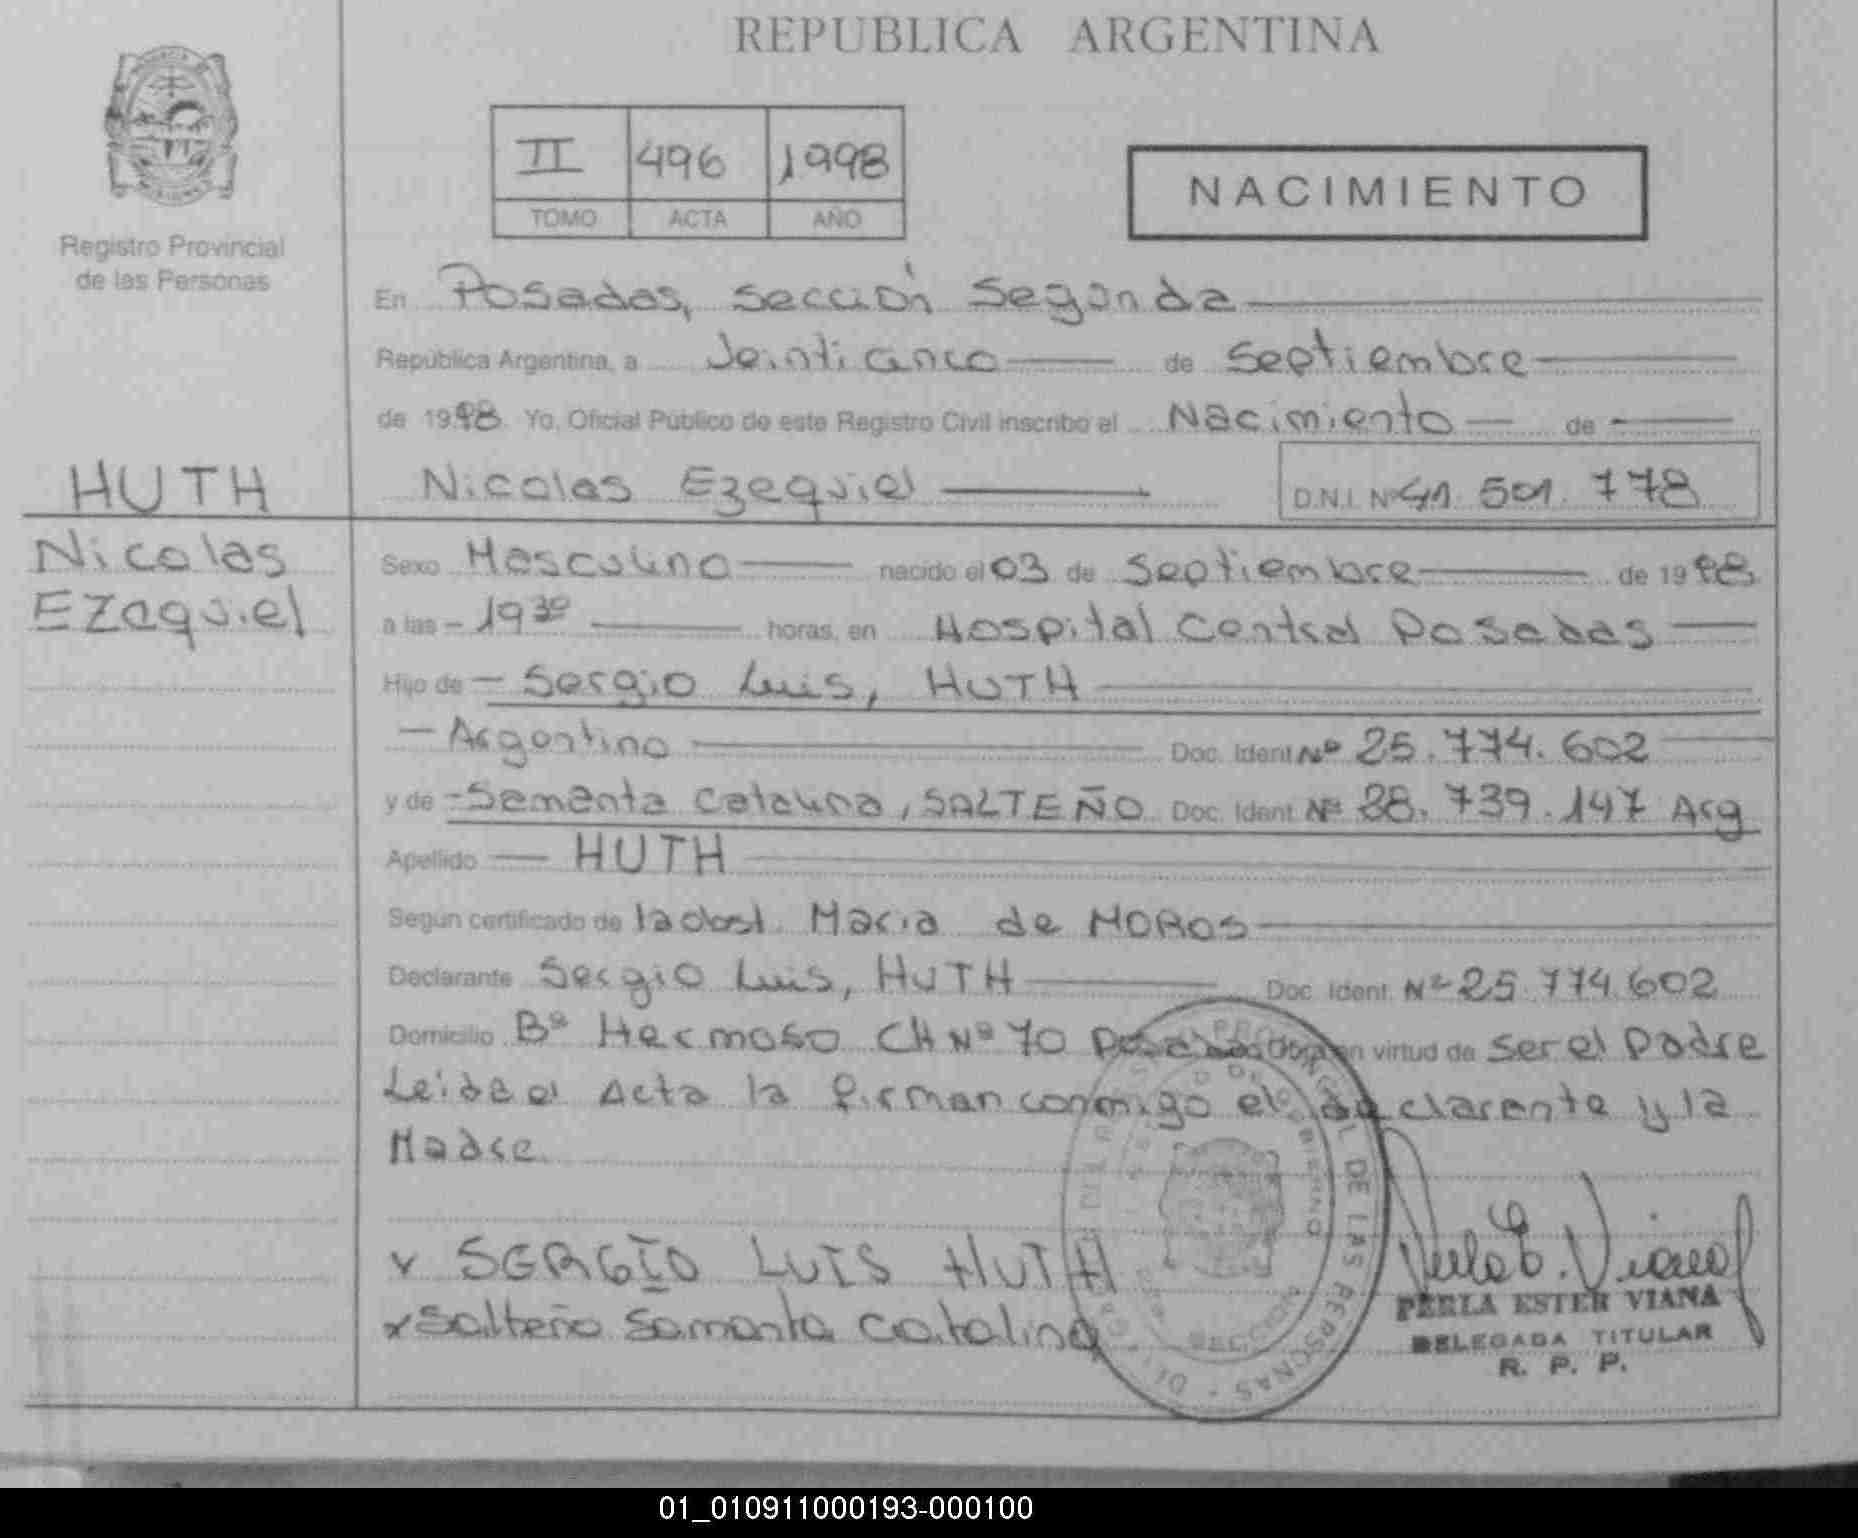 REPUBLICA ARGENTINA
II 496 1998
TOMO ACTA AÑO
NACIMIENTO
Registro Provincial
de las Personas
En Posadas, sección Segunda
República Argentina, a Veinticinco de Septiembre
de 1998. Yo, Oficial Público de este Registro Civil inscribo el Nacimiento de
Nicolas Ezequiel D.N.I. Nº 41.501.778
HUTH
Nicolas
Ezequiel
Sexo Masculino nacido el 03 de Septiembre de 1998
a las 19 30 horas, en Hospital Central Posadas
Hijo de Sergio Luis, HUTH
Argentino Doc. Ident Nº 25.774.602
y de Samanta Catalina, SALTEÑO Doc. Ident. Nº 28.739.147 Arg
Apellido HUTH
Según certificado de la obst. Maria de MOROS
Declarante Sergio Luis, HUTH Doc. Ident. Nº 25.774.602
Domicilio Bº Hermoso CH Nº 70 Posadas Obra en virtud de ser el Padre
Leida el Acta la firman conmigo el declarante y la
Madre.
x SERGIO LUIS HUTH
x Salteño Samanta Catalina
PERLA ESTER VIANA
DELEGADA TITULAR
R. P. P.
PROVINCIAL DE LAS PERSONAS
01_010911000193-000100